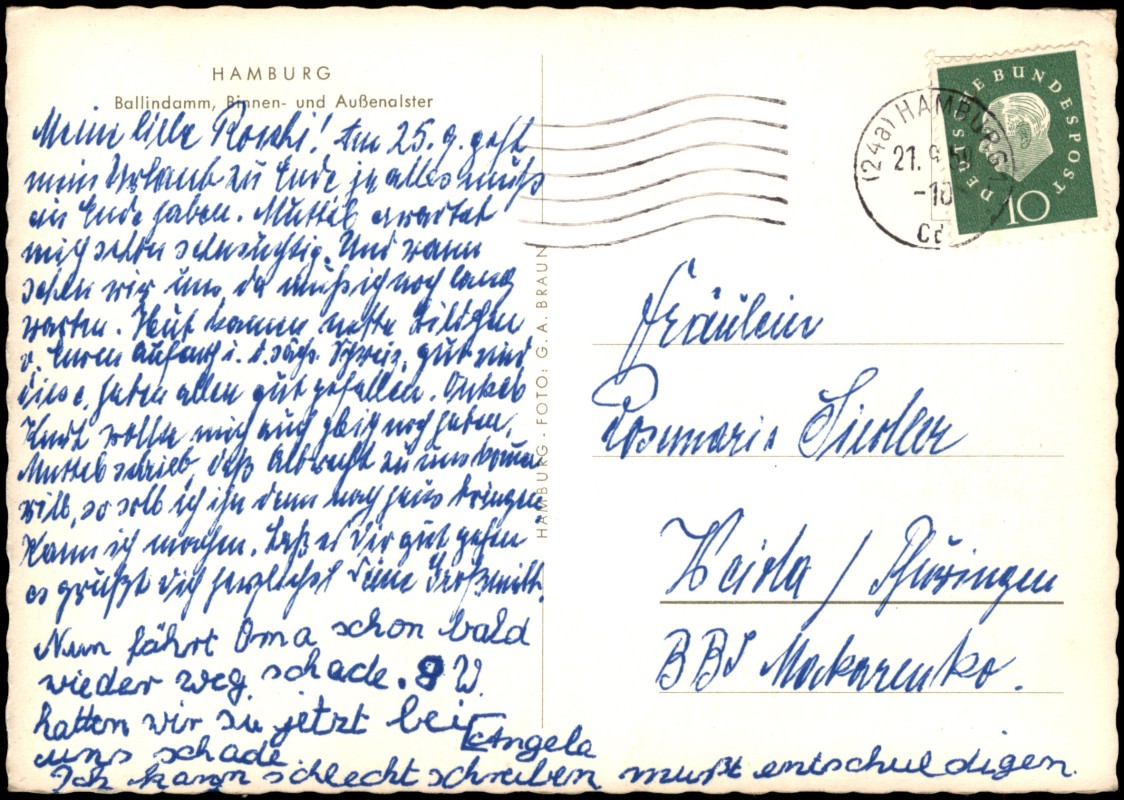 HAMBURG
Ballindamm, Binnen- und Außenalster
Meine liebe Roschi! Am 25.9. geht
mein Urlaub zu Ende ja alles muß
ein Ende haben. Muttel erwartet
mich schon sehnsüchtig. Und wann
sehen wir uns, da muß ich noch lang
warten. Heut kamen nette Bildchen
v. Euren Aufenth. i. d. sächs. Schweiz, gut sind
diese, haben allen gut gefallen. Onkel
wollte mich auch noch haben,
Muttel schrieb, daß Albrecht zu uns kommen
will, so soll ich ihn dann nach haus bringen
Kann ich machen. Laß es Dir gut gehen
es grüßt Dich herzlichst Deine Großmutt.
Nun fährt Oma schon bald
wieder weg, schade. 8 W.
hatten wir sie jetzt bei
uns schade. Angela
Ich kann schlecht schreiben mußt entschuldigen.
HAMBURG - FOTO: G. A. BRAUN
DEUTSCHE BUNDESPOST
10
(24a) HAMBURG
21. 9. 59
-10
Cd
Fräulein
Rosmarie Siedler
Weida / Thüringen
BBS Makarenko.